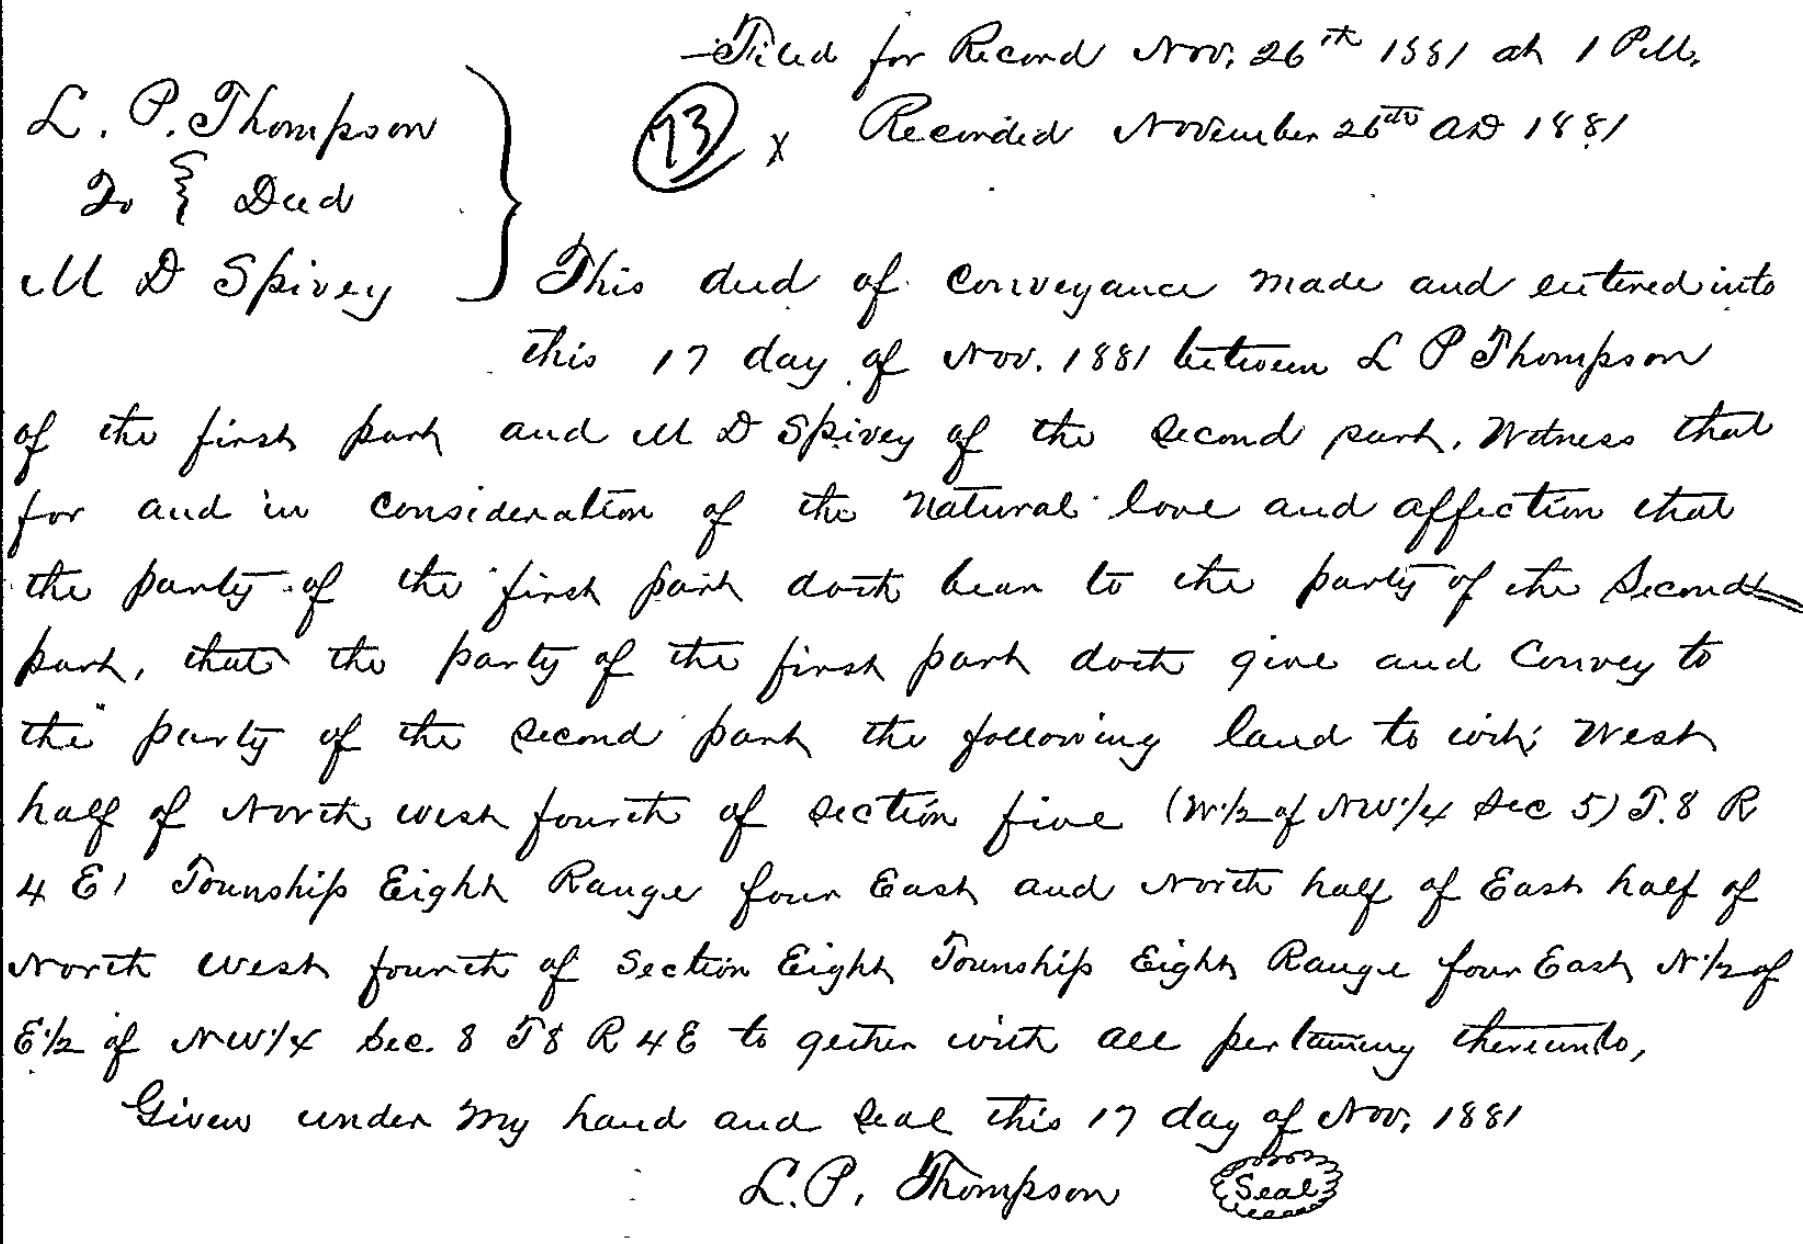 Filed for Record Nov. 26th 1881 at 1 P.M.
L. P. Thompson
73 x Recorded November 26th AD 1881
To } Deed
M D Spivey
This deed of conveyance made and entered into
this 17 day of Nov. 1881 between L P Thompson
of the first part and M D Spivey of the second part. Witness that
for and in consideration of the natural love and affection that
the party of the first part doth bear to the party of the second
part, that the party of the first part doth give and convey to
the party of the second part the following land to wit; West
half of North west fourth of section five (W 1/2 of NW 1/4 Sec 5) T. 8 R
4 E) Township Eight Range four East and North half of East half of
North west fourth of Section Eight Township Eight Range four East N 1/2 of
E 1/2 of NW 1/4 Sec. 8 T8 R 4 E to gether with all pertaining thereunto,
Given under my hand and seal this 17 day of Nov. 1881
L. P. Thompson Seal